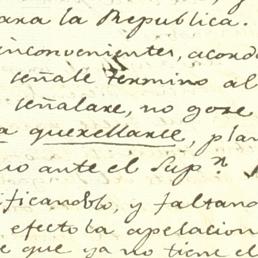 para la Republica.
inconvenientes, acord
señale termino al
señalare, no gose
a querellarse, plan
o ante el Sup.n
ficandolo, y faltand
efecto la apelacion
e que ya no tiene el